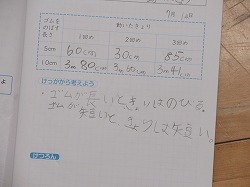 7月14日
ゴムを
のばす
長さ
動いたきょり
1回め 2回め 3回め
5cm 60cm 30cm 85cm
10cm 3m80cm 3m60cm 3m41cm
けっかから考えよう
ゴムが長いときょりはのびる。
ゴムが短いときょりも短い。
けつろん